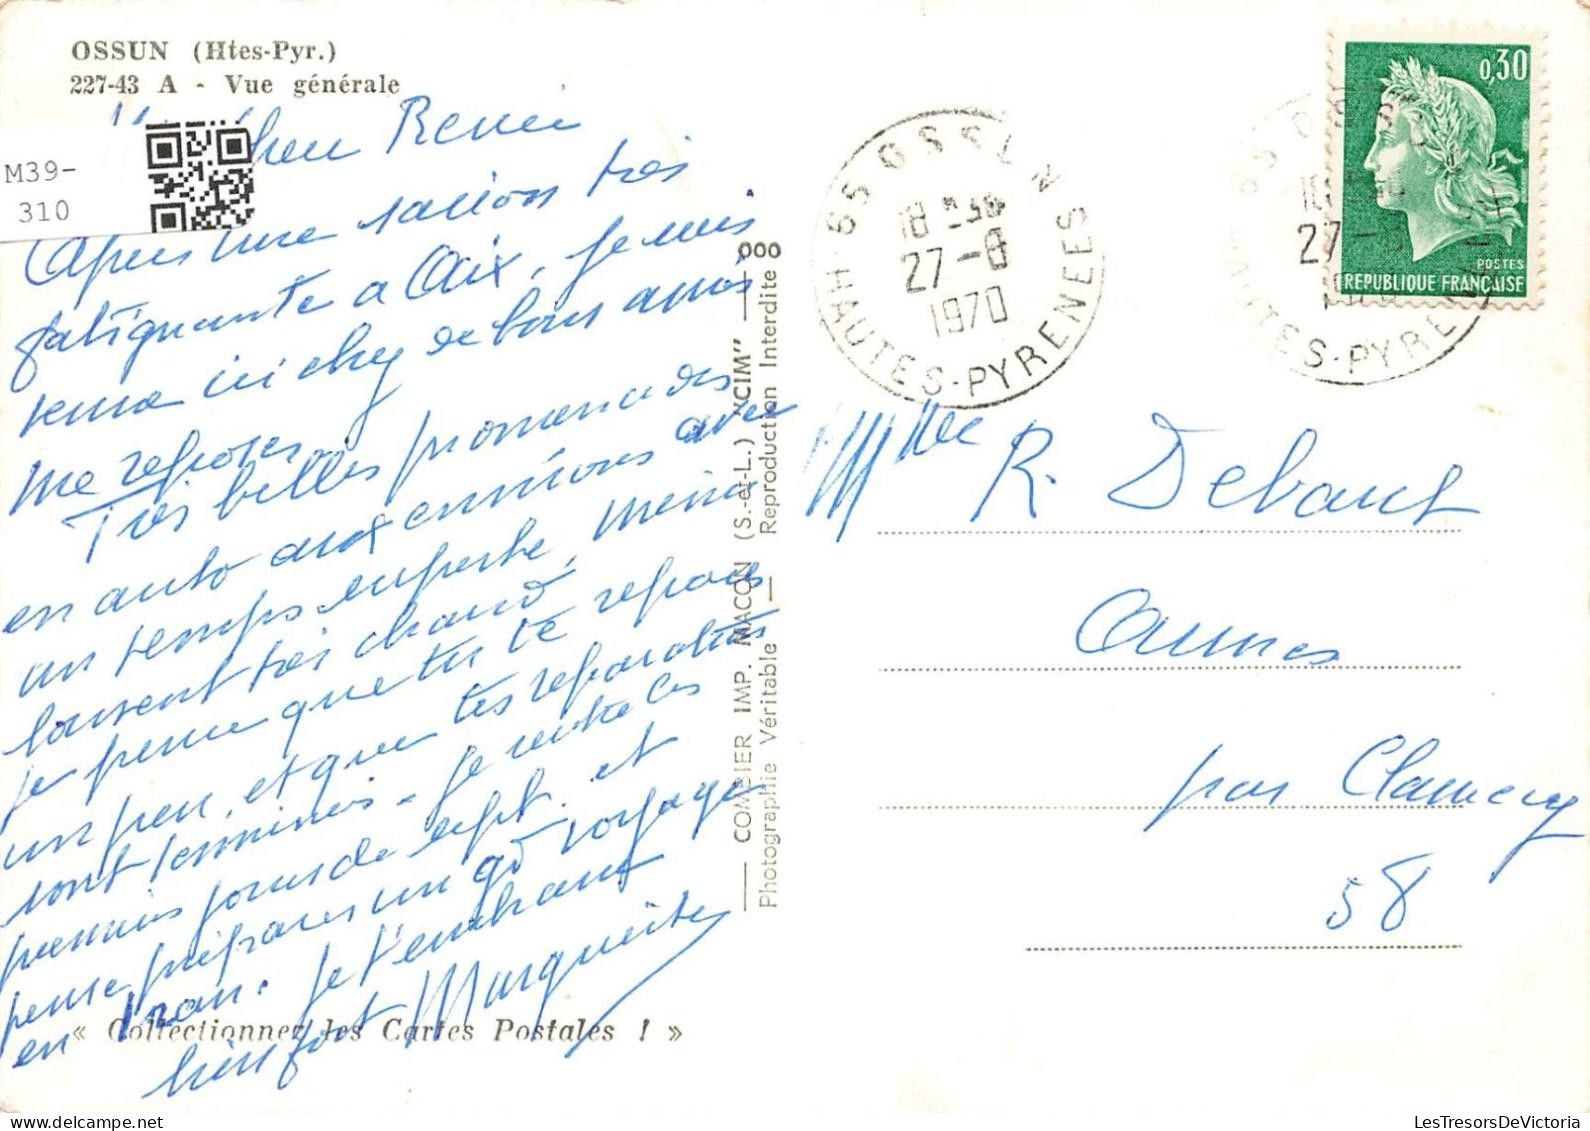 OSSUN (Htes-Pyr.)
227-43 A - Vue générale
M39-
310
Chère Renée
Après une saison très
fatigante a Aix, je suis
venue ici chez de bons amis
me reposer
Très belles promenades
en auto aux environs avec
un temps superbe, même
souvent très chaud,
je pense que tu te reposes
un peu, et que tes réparations
sont terminées - je rentre les
premiers jours de sept. et
pense préparer un gd voyage
en Iran. je t'embrasse
bien fort Marguerite
« Collectionnez les Cartes Postales ! »
COMBIER IMP. MACON (S.-et-L.) "CIM"
Photographie Véritable — Reproduction Interdite
65 OSSUN
18 H30
27-8
1970
HAUTES-PYRENEES
0,30
POSTES
REPUBLIQUE FRANÇAISE
65 OSSUN
27-8
1970
HAUTES-PYRENEES
Mlle R. Debaut
par Clamecy
58
LesTresorsDeVictoria